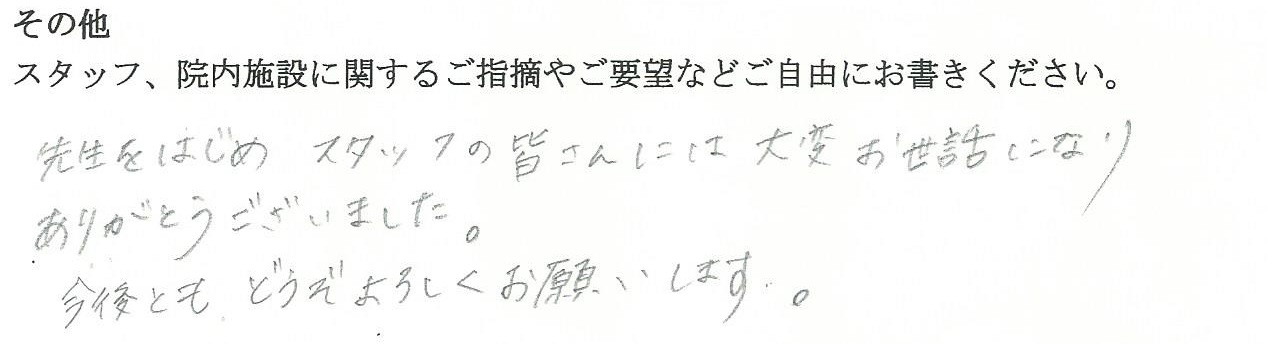 その他
スタッフ、院内施設に関するご指摘やご要望などご自由にお書きください。
先生をはじめ スタッフの皆さんには 大変 お世話になり
ありがとうございました。
今後とも どうぞよろしくお願いします。